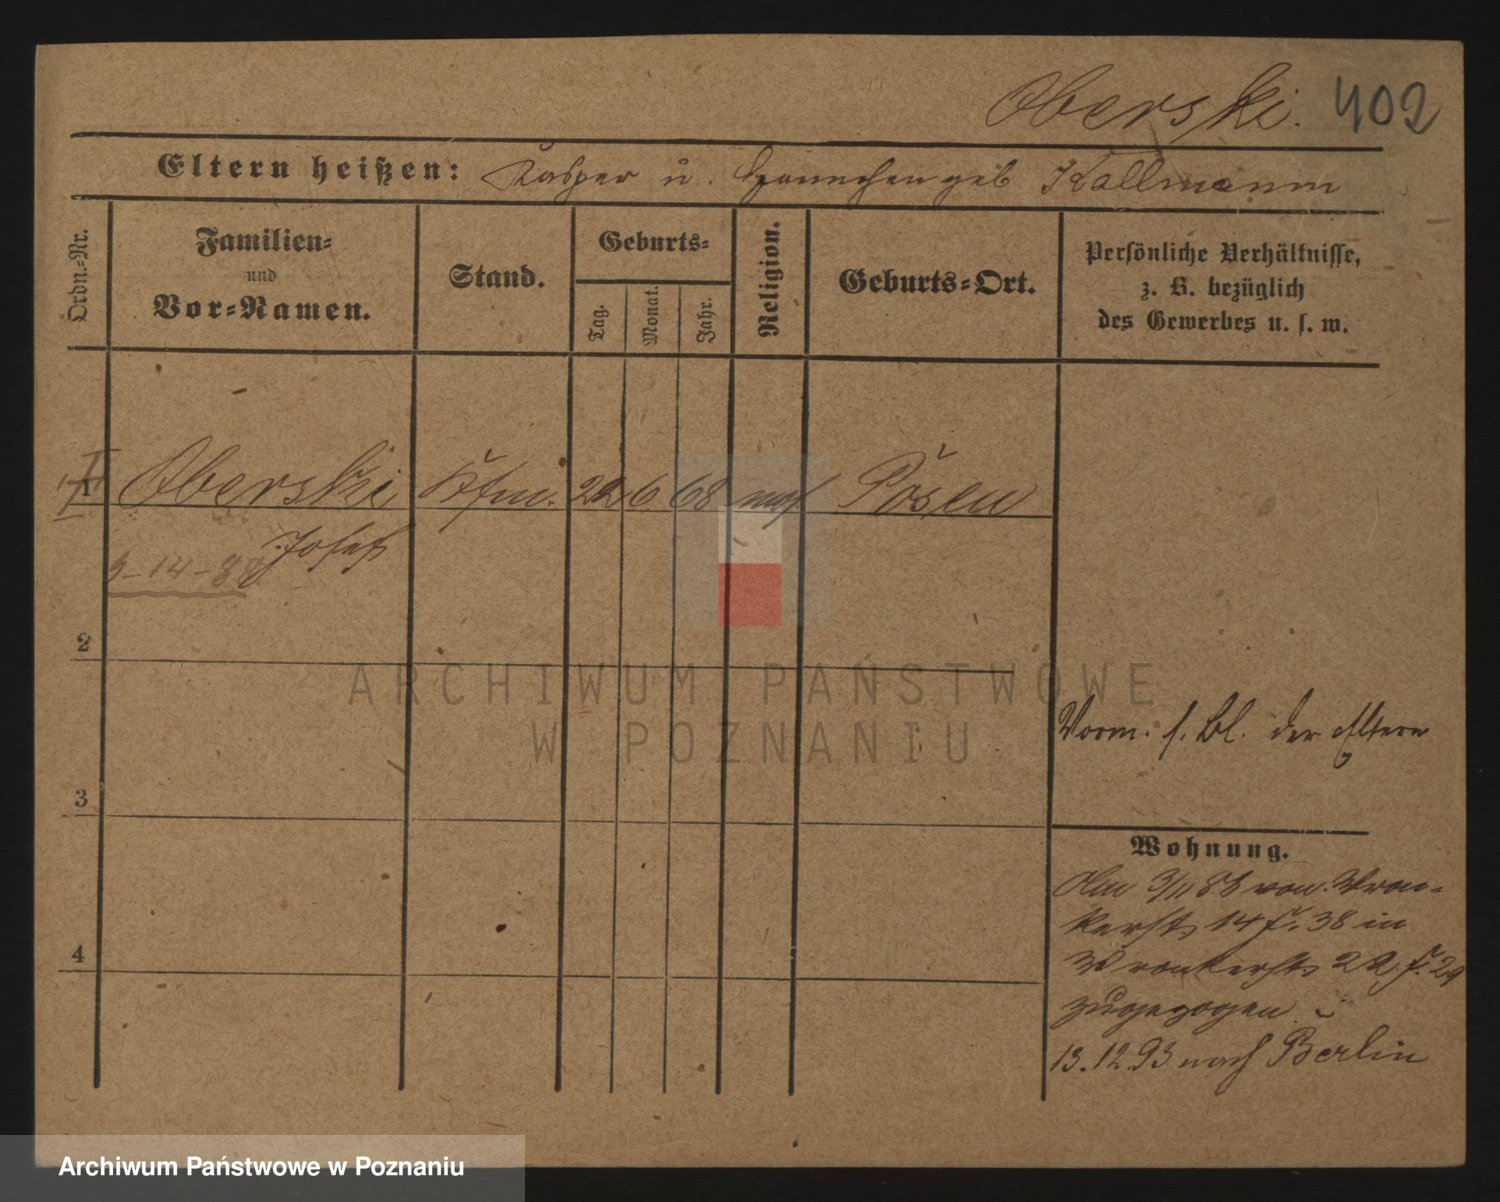 Oberski. 402
Eltern heißen: Kasper u. Hannchen geb Kallmann
Ordn.-Nr.
Familien-
und
Vor-Namen.
Stand.
Geburts-
Tag.
Monat.
Jahr.
Religion.
Geburts-Ort.
Persönliche Verhältnisse,
z. B. bezüglich
des Gewerbes u. s. w.
1 Oberski Kfm. 22 6 68 mos Posen
Josef
9-14-88
2
ARCHIWUM PAŃSTWOWE
W POZNANIU
Vorm. s. Bl. der Eltern
3
Wohnung.
Am 3/11 88 von Wron-
kerstr. 14 f. 38 in
Wronkerstr. 22 f. 29
zugezogen
13.12.93 nach Berlin
4
Archiwum Państwowe w Poznaniu